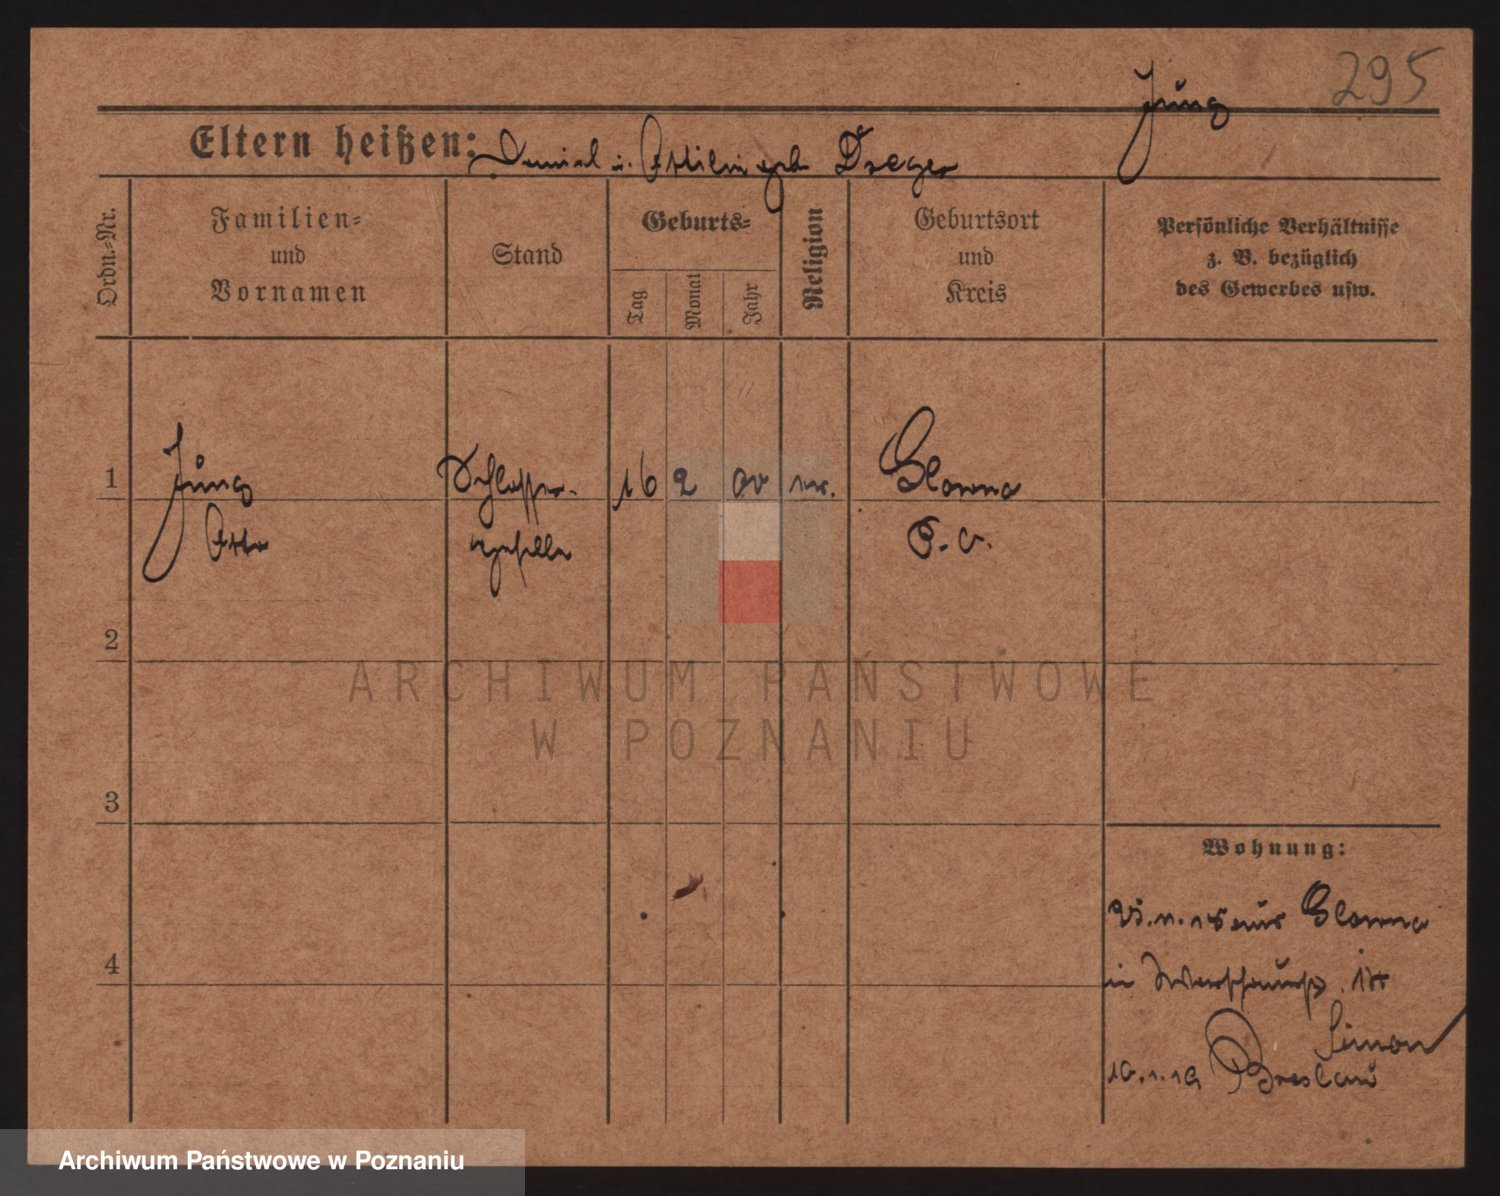 295
Jung
Eltern heißen: Daniel u. Ottilie geb Dreger
Ordn.-Nr.
Familien-
und
Vornamen
Stand
Geburts-
Tag
Monat
Jahr
Religion
Geburtsort
und
Kreis
Persönliche Verhältnisse
z. B. bezüglich
des Gewerbes usw.
1
Jung
Otto
Schlosser-
geselle
16
2
00
ev.
Glowno
P. O.
2
3
4
Wohnung:
25.11.18 aus Glowno
in
Simon
10.1.19 Breslau
ARCHIWUM PAŃSTWOWE
W POZNANIU
Archiwum Państwowe w Poznaniu